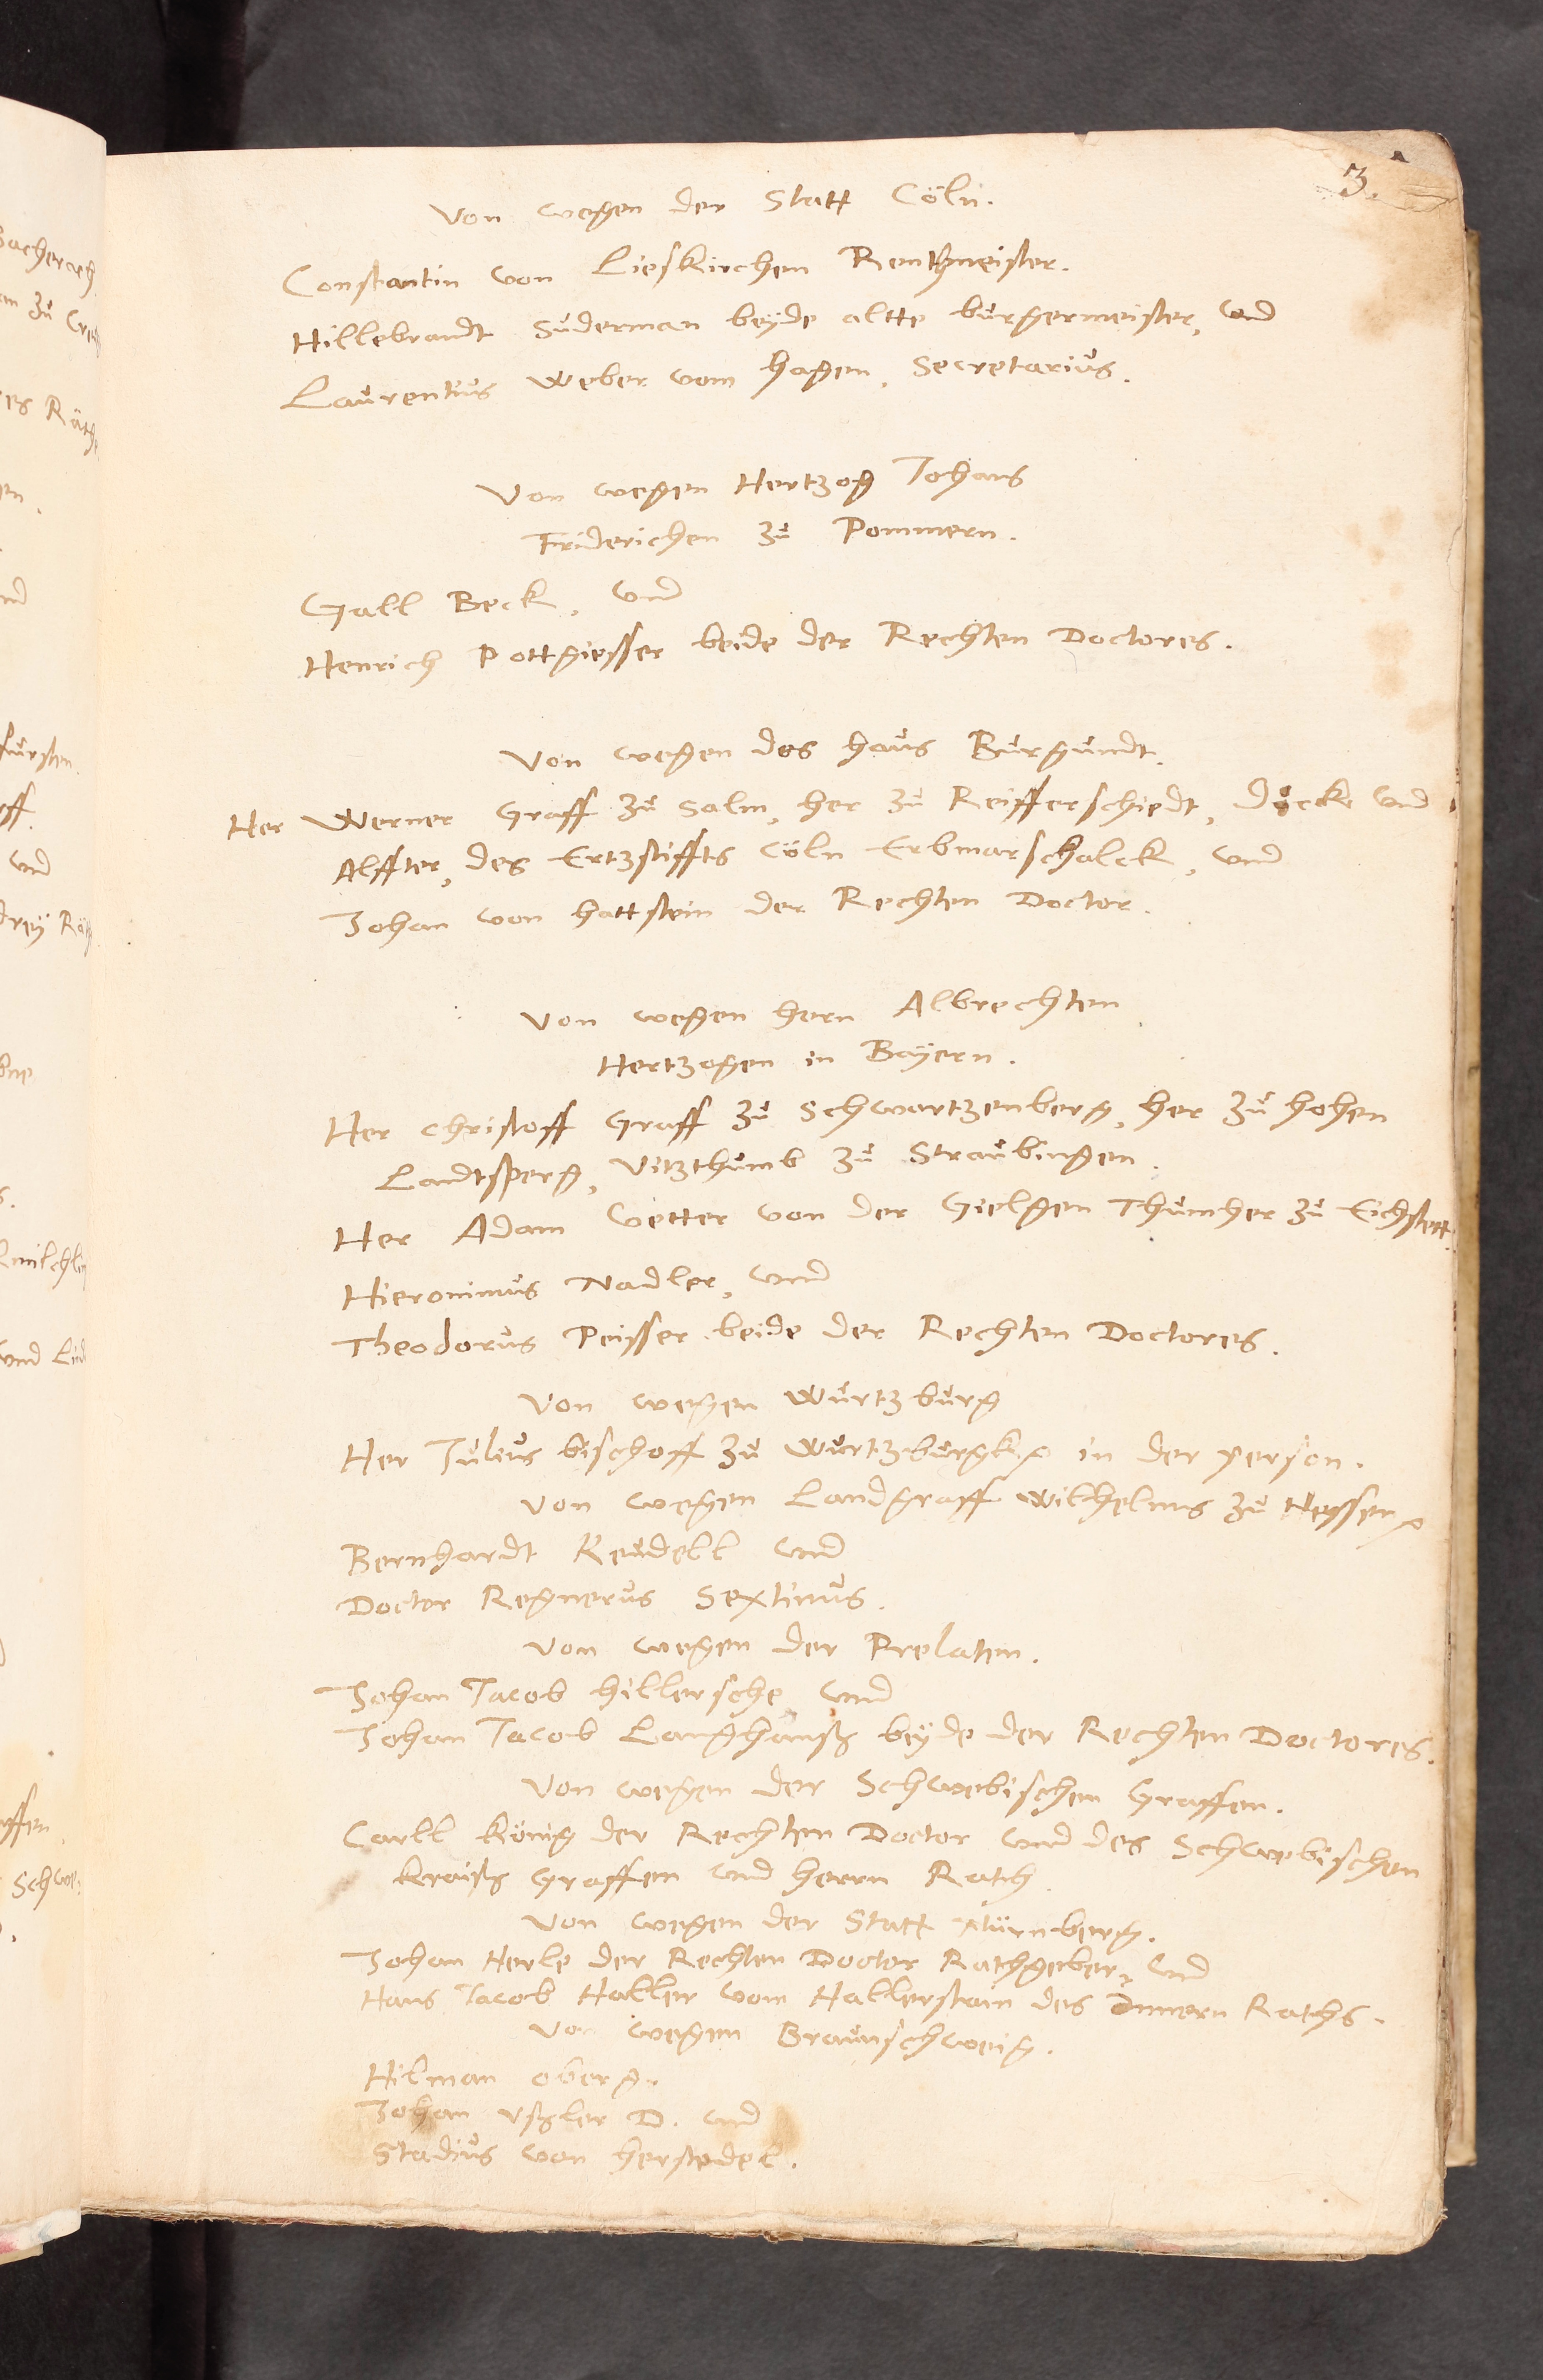 3.
Von wegen der Statt Cöln.
Constantin von Lieskirchen Rentmeister.
Hillebrandt Suderman beyde altte burgermeister, vnd
Laurentius Weber vom hagen, Secretarius.
Von wegen Hertzog Johans
Friderichen zu Pommern.
Gall Beck, vnd
Henrich Pottgiesser beide der Rechten Doctores.
Von wegen des haus Burgundt.
Her Werner Graff zu Salm, her zu Reifferschiedt, Dycke vnd
Alffter, des Ertzstiffts Cöln Erbmarschalck, vnd
Johan von hattstein der Rechten Doctor.
Von wegen hern Albrechten
Hertzogen in Bayern.
Her Christoff Graff zu Schwartzenberg, her zu hohen
Landtsperg, Vitzthumb zu Straubingen.
Her Adam Vetter von der Gielgen Thumher zu Eichstett.
Hieronimus Nadler, vnd
Theodorus Peisser beide der Rechten Doctores.
Von wegen Wurtzburg
Her Julius bischoff zu Wurtzburgk in der person.
Von wegen Landgraff Wilhelms zu Hessen
Bernhardt Keudell vnd
Doctor Regnerus Sextinus.
Von wegen der Prelaten.
Johan Jacob hillersche, vnd
Johan Jacob Langhanß beyde der Rechten Doctores.
Von wegen der Schwebischen Graffen.
Carll König der Rechten Doctor vnd des Schwebischen
kraiß Graffen vnd herrn Rath.
Von wegen der Statt Nürnberg.
Johan Herle der Rechten Doctor Rathgeber, vnd
Hans Jacob Haller vom Hallerstain des Innern Raths.
Von wegen Braunschweig.
Hilman oberg.
Johan Vßler D. vnd
Stadius von herstedel.